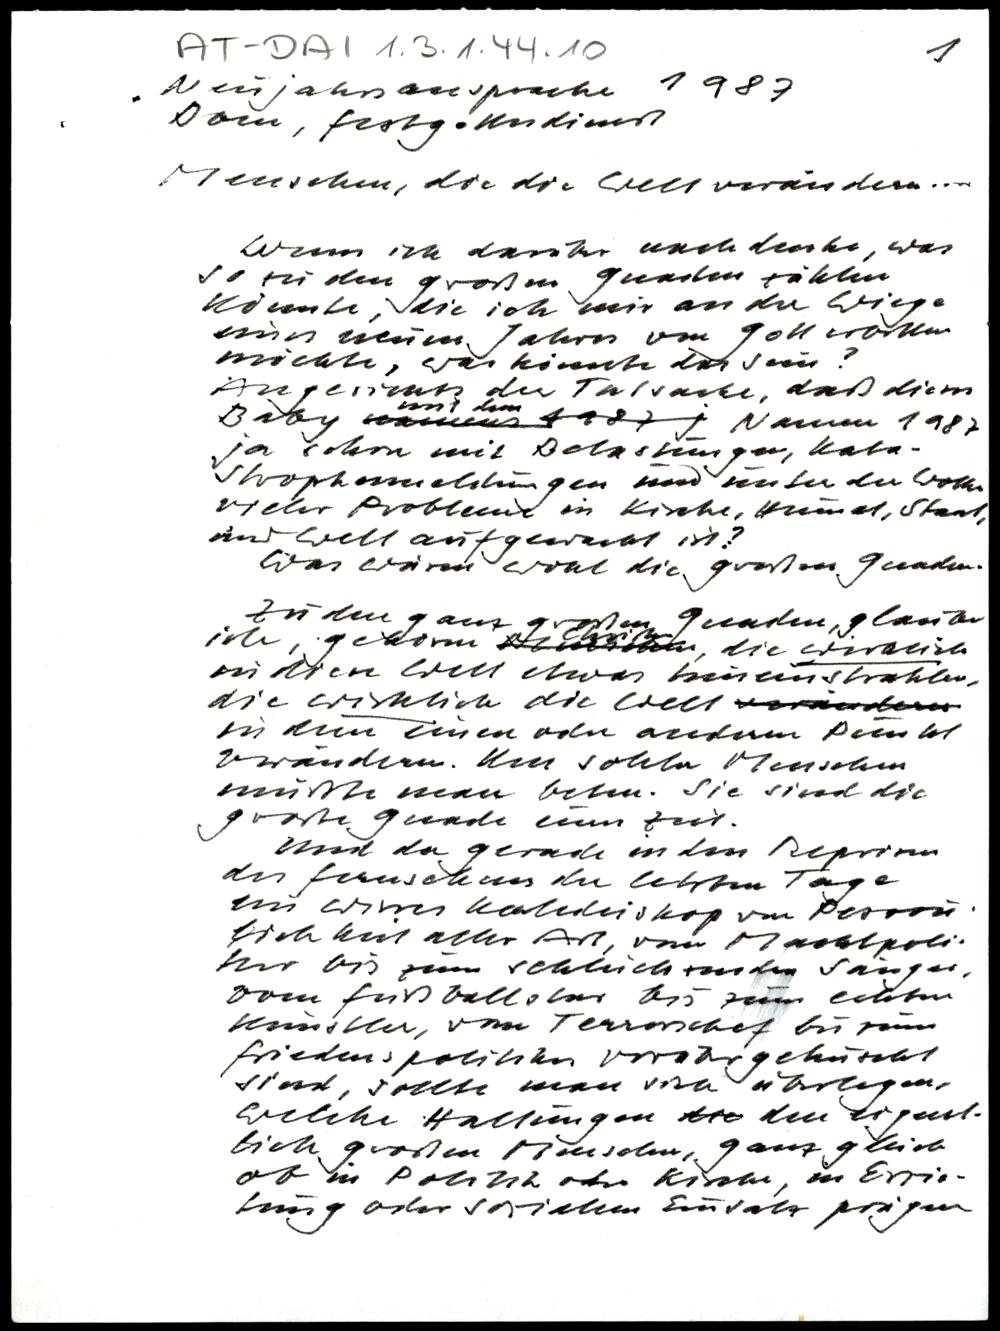 AT-DAI 1.3.1.44.10
1
Neujahrsansprache 1987
Dom, Festgottesdienst
Menschen, die die Welt verändern...
Wenn ich darüber nachdenke, was
so zu den großen Gnaden zählen
könnte, die ich mir an der Wiege
eines neuen Jahres von Gott erbitten
möchte, was könnte das sein?
Angesichts der Tatsache, daß dieses
Baby namens 1987 mit dem Namen 1987
ja schon mit Belastungen, Kata-
strophenmeldungen und unter der Wolke
vieler Probleme in Kirche, Heimat, Staat,
und Welt aufgewacht ist?
Was wären wohl die großen Gnaden.
Zu den ganz großen Gnaden, glaube
ich, gehören Menschen Christen, die wirklich
in diese Welt etwas hineinstrahlen,
die wirklich die Welt verändern
in dem einen oder anderen Punkt
verändern. Um solche Menschen
müßte man beten. Sie sind die
große Gnade einer Zeit.
Und da gerade in den Reprisen
des Fernsehens der letzten Tage
ein wirres Kaleidoskop von Persön-
lichkeit aller Art, vom Machtpoli-
tiker bis zum schluchzenden Sänger,
vom Fußballstar bis zum echten
Künstler, vom Terrorchef bis zum
Friedenspolitiker vorübergehuscht
sind, sollte man sich überlegen,
welche Haltungen die den eigent-
lich großen Menschen, ganz gleich
ob in Politik oder Kirche, in Erzie-
hung oder sozialem Einsatz prägen